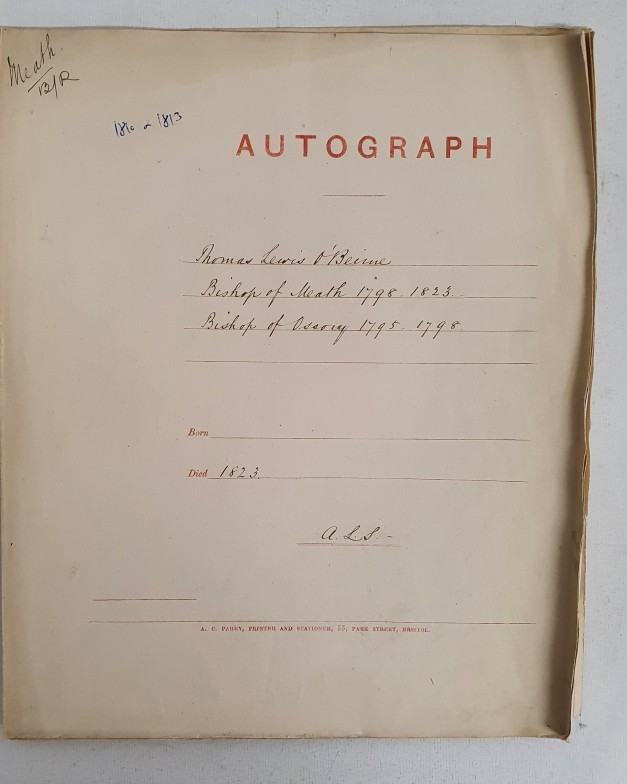 Meath.
B/R
1810 & 1813
AUTOGRAPH
Thomas Lewis O'Beirne
Bishop of Meath 1798. 1823.
Bishop of Ossory 1795. 1798
Born
Died 1823.
A.L.S.-
A. C. PARRY, PRINTER AND STATIONER, 55, PARK STREET, BRISTOL.